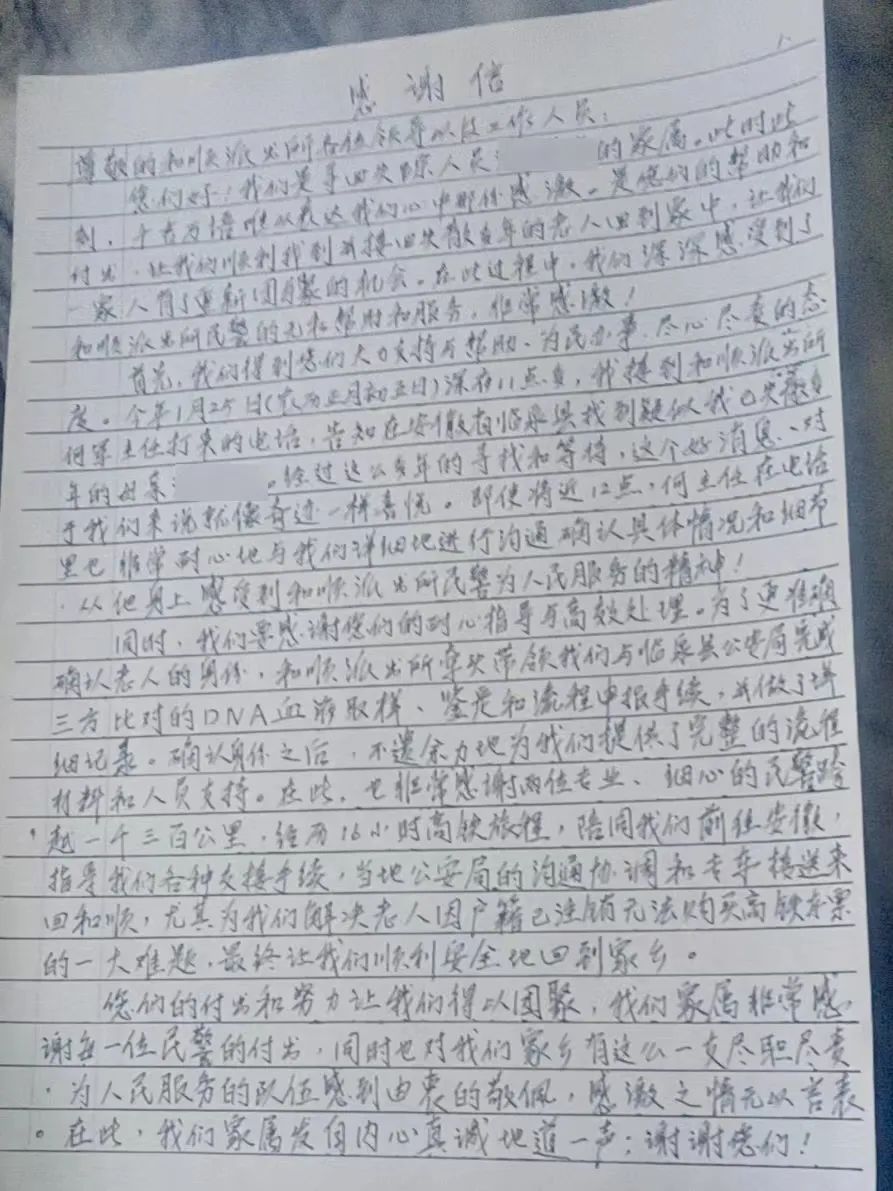 感谢信
尊敬的和顺派出所各位领导以及工作人员：
您们好！我们是寻回失踪人员 的家属。此时此
刻，千言万语难以表达我们心中那份感激。是您们的帮助和
付出，让我们顺利找到并接回失散多年的老人回到家中，让我们
一家人有了重新团聚的机会。在此过程中，我们深深感受到了
和顺派出所民警的无私帮助和服务，非常感激！
首先，我们得到您们大力支持与帮助、为民办事、尽心尽责的态
度。今年1月25日(农历正月初五日)深夜11点多，我接到和顺派出所
何军主任打来的电话，告知在安徽省临泉县找到疑似我已失散多
年的母亲 。经过这么多年的寻找和等待，这个好消息、对
于我们来说就像奇迹一样喜悦。即使将近12点，何主任在电话
里也非常耐心地与我们详细地进行沟通确认具体情况和细节
，从他身上感受到和顺派出所民警为人民服务的精神！
同时，我们要感谢您们的耐心指导与高效处理。为了更准确
确认老人的身份，和顺派出所牵头带领我们与临泉县公安局完成
三方比对的DNA血液取样、鉴定和流程申报手续，并做了详
细记录。确认身份之后，不遗余力地为我们提供了完整的流程
材料和人员支持。在此，也非常感谢两位专业、细心的民警跨
越一千三百公里，经历16小时高铁旅程，陪同我们前往安徽，
指导我们各种交接手续，当地公安局的沟通协调和专车接送来
回和顺，尤其为我们解决老人因户籍已注销无法购买高铁车票
的一大难题，最终让我们顺利安全地回到家乡。
您们的付出和努力让我们得以团聚，我们家属非常感
谢每一位民警的付出，同时也对我们家乡有这么一支尽职尽责
，为人民服务的队伍感到由衷的敬佩，感激之情无以言表
。在此，我们家属发自内心真诚地道一声：谢谢您们！